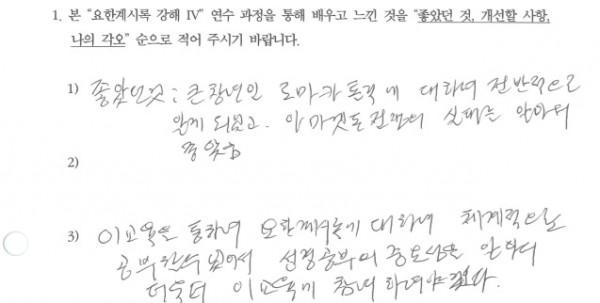 1. 본 “요한계시록 강해 IV” 연수 과정을 통해 배우고 느낀 것을 “좋았던 것, 개선할 사항,
나의 각오” 순으로 적어 주시기 바랍니다.
1) 좋았던것 : 큰창녀인 로마카톨릭에 대하여 전반적으로
알게 되었고. 아마겟돈전쟁의 실체를 알아서
좋았음
2)
3) 이교육을 통하여 요한계시록에 대하여 체계적으로
공부할수 있어서 성경공부의 중요성을 안다
더욱더 이교육에 참여 하여야겠다.